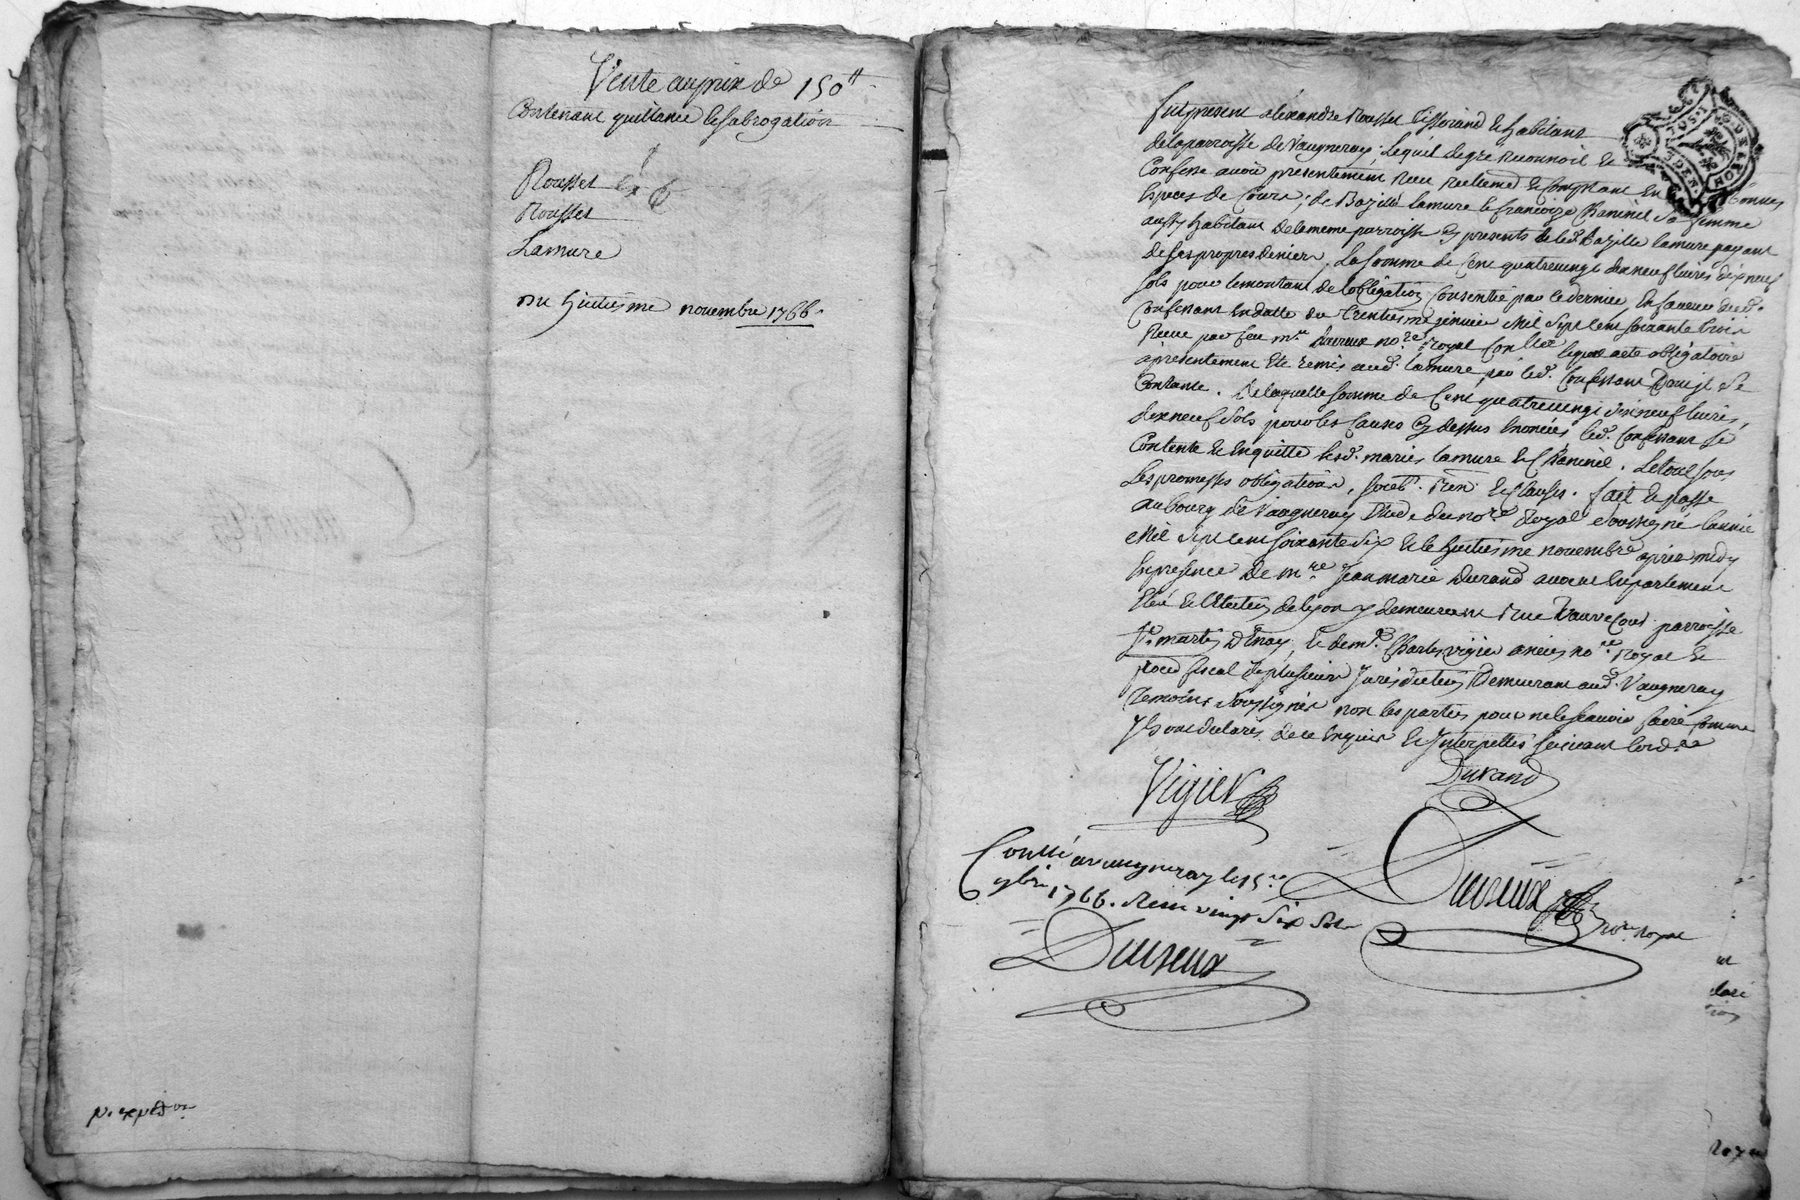 Vente au prix de 150 ₶
Contenant quittance et sabrogation
Rousset
Rousset
Lamure
Du huitiesme novembre 1766.
p. expéd on
Fut present aléxandre Rousset tisserand et habitant
de la parroisse de Vaugneray, lequel de gré reconnoit et
Confesse avoir presentement receu reellement et Comptant en bonnes
Especes de Cours, de Bazille lamure et francoize Chaninel sa femme
aussy habitant de la meme parroisse cy presents et led. Bazille lamure payant
de ses propres deniers, la somme de Cent quatrevingt dixneuf livres dixneuf
sols pour le montant de lobligation Consentie par ce dernier en faveur dud.
Confessant en datte du trentiesme janvier Mil Sept Cent soixante trois
Receue par feu mre. Duvreux nore. royal lequel acte obligatoire
a presentement été remis aud. lamure par led. Confessant Dont il se
Contante. De laquelle somme de Cent quatrevingt dixneuf livres
dixneuf sols pour les Causes cy dessus enoncées led. Confessant se
Contente et en quitte lesd. mariés lamure et Chaninel. Le tout sous
Les promesses obligations, Renon. et Clauses. fait et passé
au bourg de Vaugneray Etude du nore. Royal Soussigné lannée
Mil Sept Cent soixante Six et le huitiesme novembre apres midy
En presence de mre. Jean marie Durand avocat en parlement
et Election de Lyon y demeurant Rue Vauvecour parroisse
St. martin D'Enay, et de mr. Charles vigier ancien nore. Royal et
procu fiscal de plusieurs Jurisdictions Demeurant aud. Vaugneray
temoins Soussignés non les parties pour ne le scavoir faire comme
Ils ont declaré de ce Enquis et Interpellés suivant lord.ce
Vigier Durand
Duvreux nore. royal
Conllé a vaugneray le 15 re
9bre 1766. Receu vingt Six Sols
Duvreux